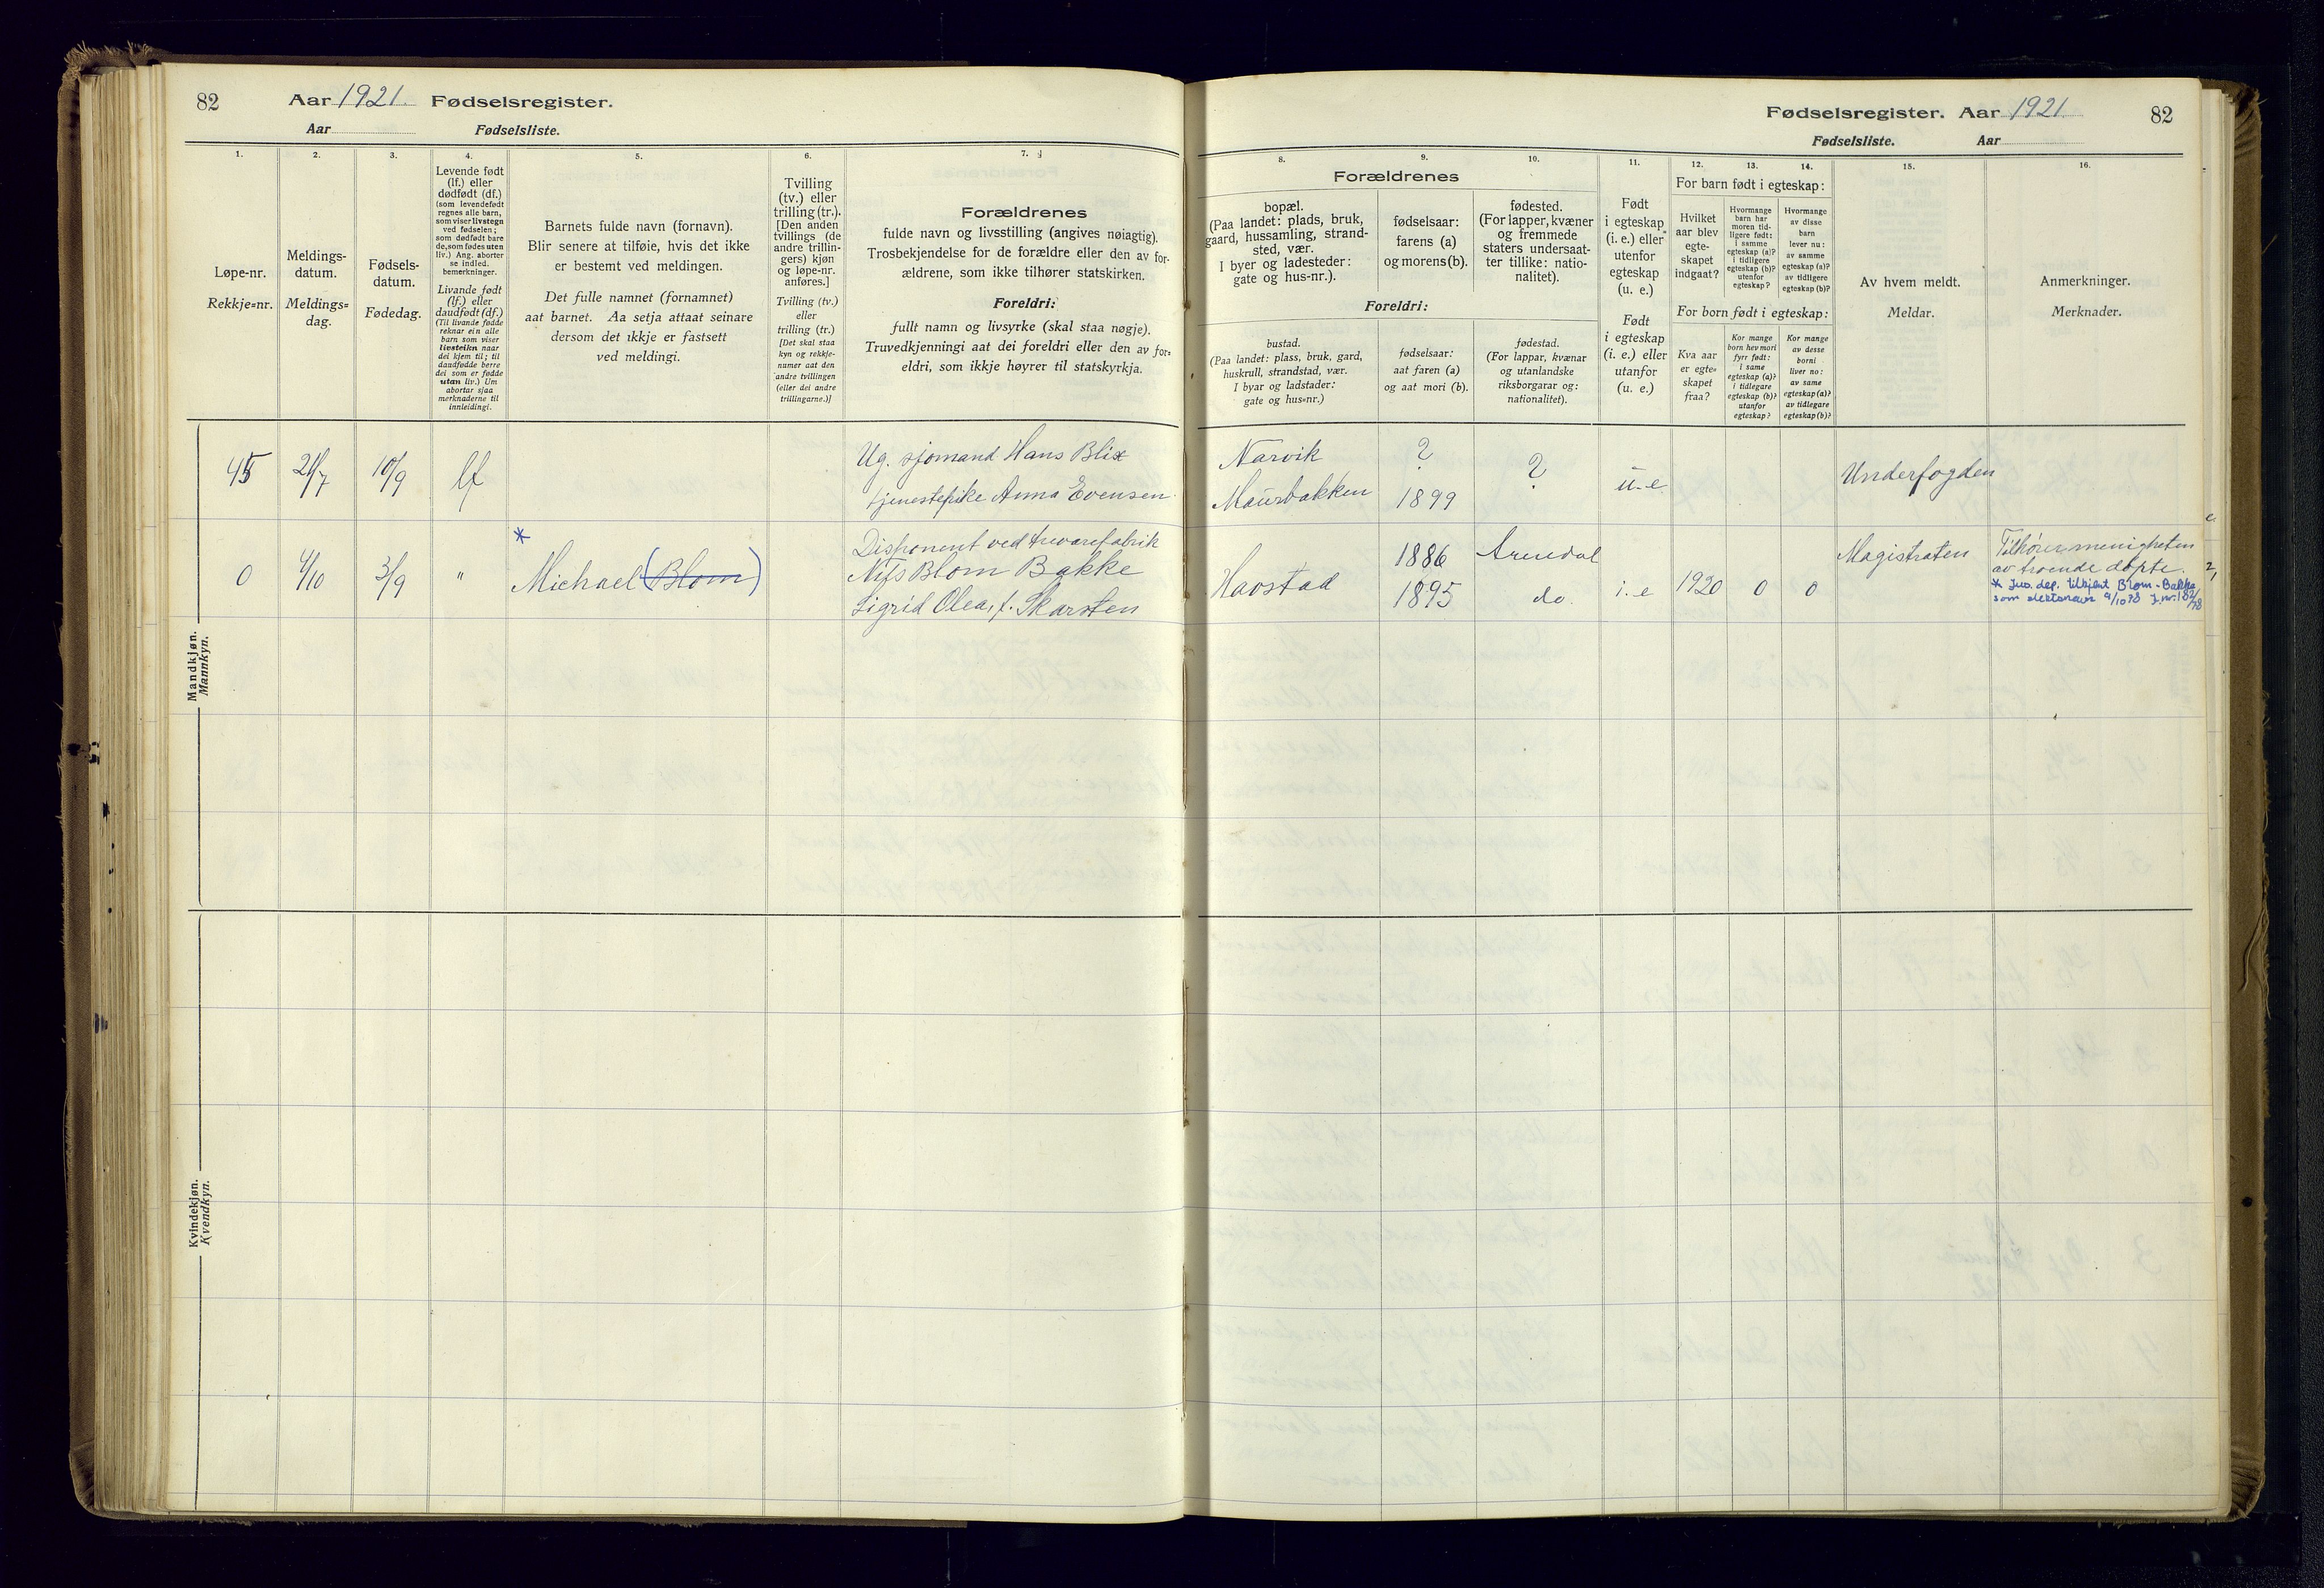 82
Aar 1921. Fødselsregister.
Aar Fødselsliste.
1.
Løpe-nr.
Rekkje=nr.
2.
Meldings-
datum.
Meldings=
dag.
3.
Fødsels-
datum.
Fødedag.
4.
Levende født
(lf.) eller
dødfødt (df.)
(som levendefødt
regnes alle barn,
som viser livstegn
ved fødselen;
som dødfødt bare
de, som fødes uten
liv.) Ang. aborter
se indled.
bemerkninger.
Livande født
(lf.) eller
daudfødt (df.)
(Til livande fødde
reknar ein alle
barn som viser
livsteikn naar
dei kjem til; til
daudfødde berre
dei som er fødde
utan liv.) Um
abortar sjaa
merknaderne til
innleidingi.
5.
Barnets fulde navn (fornavn).
Blir senere at tilføie, hvis det ikke
er bestemt ved meldingen.
Det fulle namnet (fornamnet)
aat barnet. Aa setja attaat seinare
dersom det ikkje er fastsett
ved meldingi.
6.
Tvilling
(tv.) eller
trilling (tr.).
[Den anden
tvillings (de
andre trillin-
gers) kjøn
og løpe-nr.
anføres.]
Tvilling (tv.)
eller
trilling (tr.)
[Det skal staa
kyn og rekkje-
numer aat den
andre tvillingen
(eller dei andre
trillingarne.)]
7.
Forældrenes
fulde navn og livsstilling (angives nøiagtig).
Trosbekjendelse for de forældre eller den av for-
ældrene, som ikke tilhører statskirken.
Foreldri:
fullt namn og livsyrke (skal staa nøgje).
Truvedkjenningi aat dei foreldri eller den av for=
eldri, som ikkje høyrer til statskyrkja.
Mandkjøn.
Mannkyn.
45 21/7 10/9 lf
Ug. sjømand Hans Blix
tjenestepike Anna Evensen
0 4/10 3/9 " * Michael (Blom)
Disponent ved trevarefabrik
Nils Blom Bakke
Sigrid Olea, f. Skarsten
Kvindekjøn.
Kvendkyn.
Fødselsregister. Aar 1921. 82
Fødselsliste. Aar
Forældrenes
8.
bopæl.
(Paa landet: plads, bruk,
gaard, hussamling, strand-
sted, vær.
I byer og ladesteder:
gate og hus-nr.).
9.
fødselsaar:
farens (a)
og morens (b).
10.
fødested.
(For lapper, kvæner
og fremmede
staters undersaat-
ter tillike: natio-
nalitet).
Foreldri:
bustad.
(Paa landet: plass, bruk, gard,
huskrull, strandstad, vær.
I byar og ladstader:
gate og hus=nr.)
fødselsaar:
aat faren (a)
og aat mori (b).
fødestad.
(For lappar, kvænar
og utanlandske
riksborgarar og:
nationalitet).
11.
Født
i egteskap
(i. e.) eller
utenfor
egteskap
(u. e.)
Født
i egteskap
(i. e.) eller
utanfor
(u. e.)
12. 13. 14.
For barn født i egteskap:
Hvilket
aar blev
egte-
skapet
indgaat?
Hvormange
barn har
moren tid-
ligere født:
i samme
egteskap (a)?
i tidligere
egteskap (b)?
utenfor
egteskap?
Hvormange
av disse
barn
lever nu:
av samme
egteskap (a)?
av tidligere
egteskap (b)?
For born født i egteskap:
Kva aar
er egte=
skapet
fraa?
Kor mange
born hev mori
fyrr født:
i same
egteskap (a)?
i tidlegare
egteskap (b)?
utanfor
egteskap?
Kor mange
av desse
borni
liver nu:
av same
egteskap (a)?
av tidlegare
egteskap (b)?
15.
Av hvem meldt.
Meldar.
16.
Anmerkninger.
Merknader.
Narvik ? ?
Maurbakken 1899 u. e Underfogden
Havstad 1886 Arendal
1895 do. i. e 1920 0 0 Magistraten
Tilhører menigheten
av troende døpte.
* Jus. dep. tilkjent Blom-Bakke
som slektsnavn 4/10 78 J.nr. 182/78